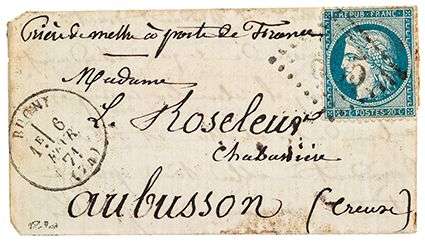 Prière de mettre à poste de France
REPUB. FRANC.
20 C POSTES 20 C
Madame
L. Roseleur
Chabassière
aubusson (Creuse)
BUGNY
1E/ 6
FEVR.
71
(74)